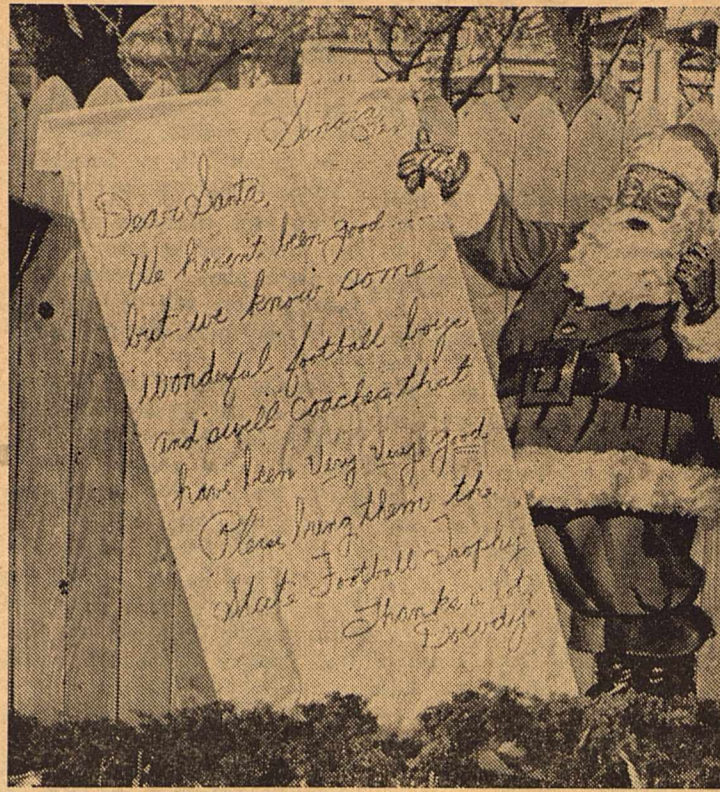 Sonora
Tex.
Dear Santa,
We haven't been good.......
but we know some
wonderful football boys
and swell coaches that
have been very very good
Please bring them the
State Football Trophy
Thanks a lot,
Dowdy.